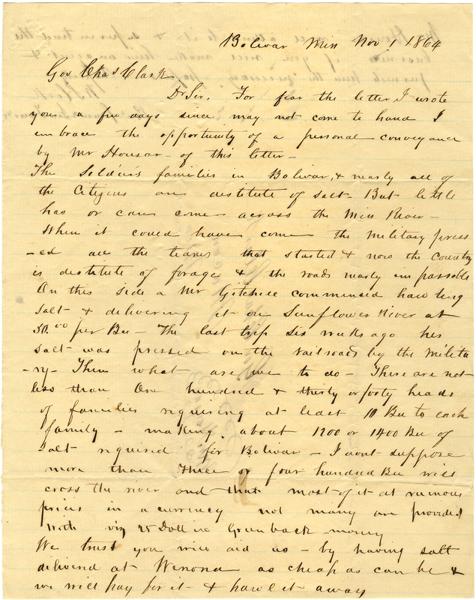 Bolivar Miss Nov 1 1864
Gov Chas Clark
Dr Sir, For fear the letter I wrote
you a few days since may not come to hand I
embrace the opportunity of a personal conveyance
by Mr Housar of this letter -
The Soldiers families in Bolivar, & nearly all of
the Citizens are destitute of salt But little
has or can come across the Miss River -
When it could have come the Military press
-ed all the teams that started & now the Country
is destitute of forage & the roads nearly impassable
On this side a Mr commenced hauling
Salt & delivering it on Sunflower River at
30.00 per Bu - The last trip six weeks ago his
salt was pressed on the railroad by the milita
-ry - Then what are we to do - There are not
less than One hundred & thirty or forty heads
of families requiring at least 10 Bu to each
family - making about 1300 or 1400 Bu of
Salt required for Bolivar - I dont suppose
more than three or four hundred Bu will
cross the river and that most of it at ruinous
prices in a currency not many are provided
with viz 25 Doll in Greenback money
We trust you will aid us - by having salt
delivered at Winona as cheap as can be &
we will pay for it & haul it away